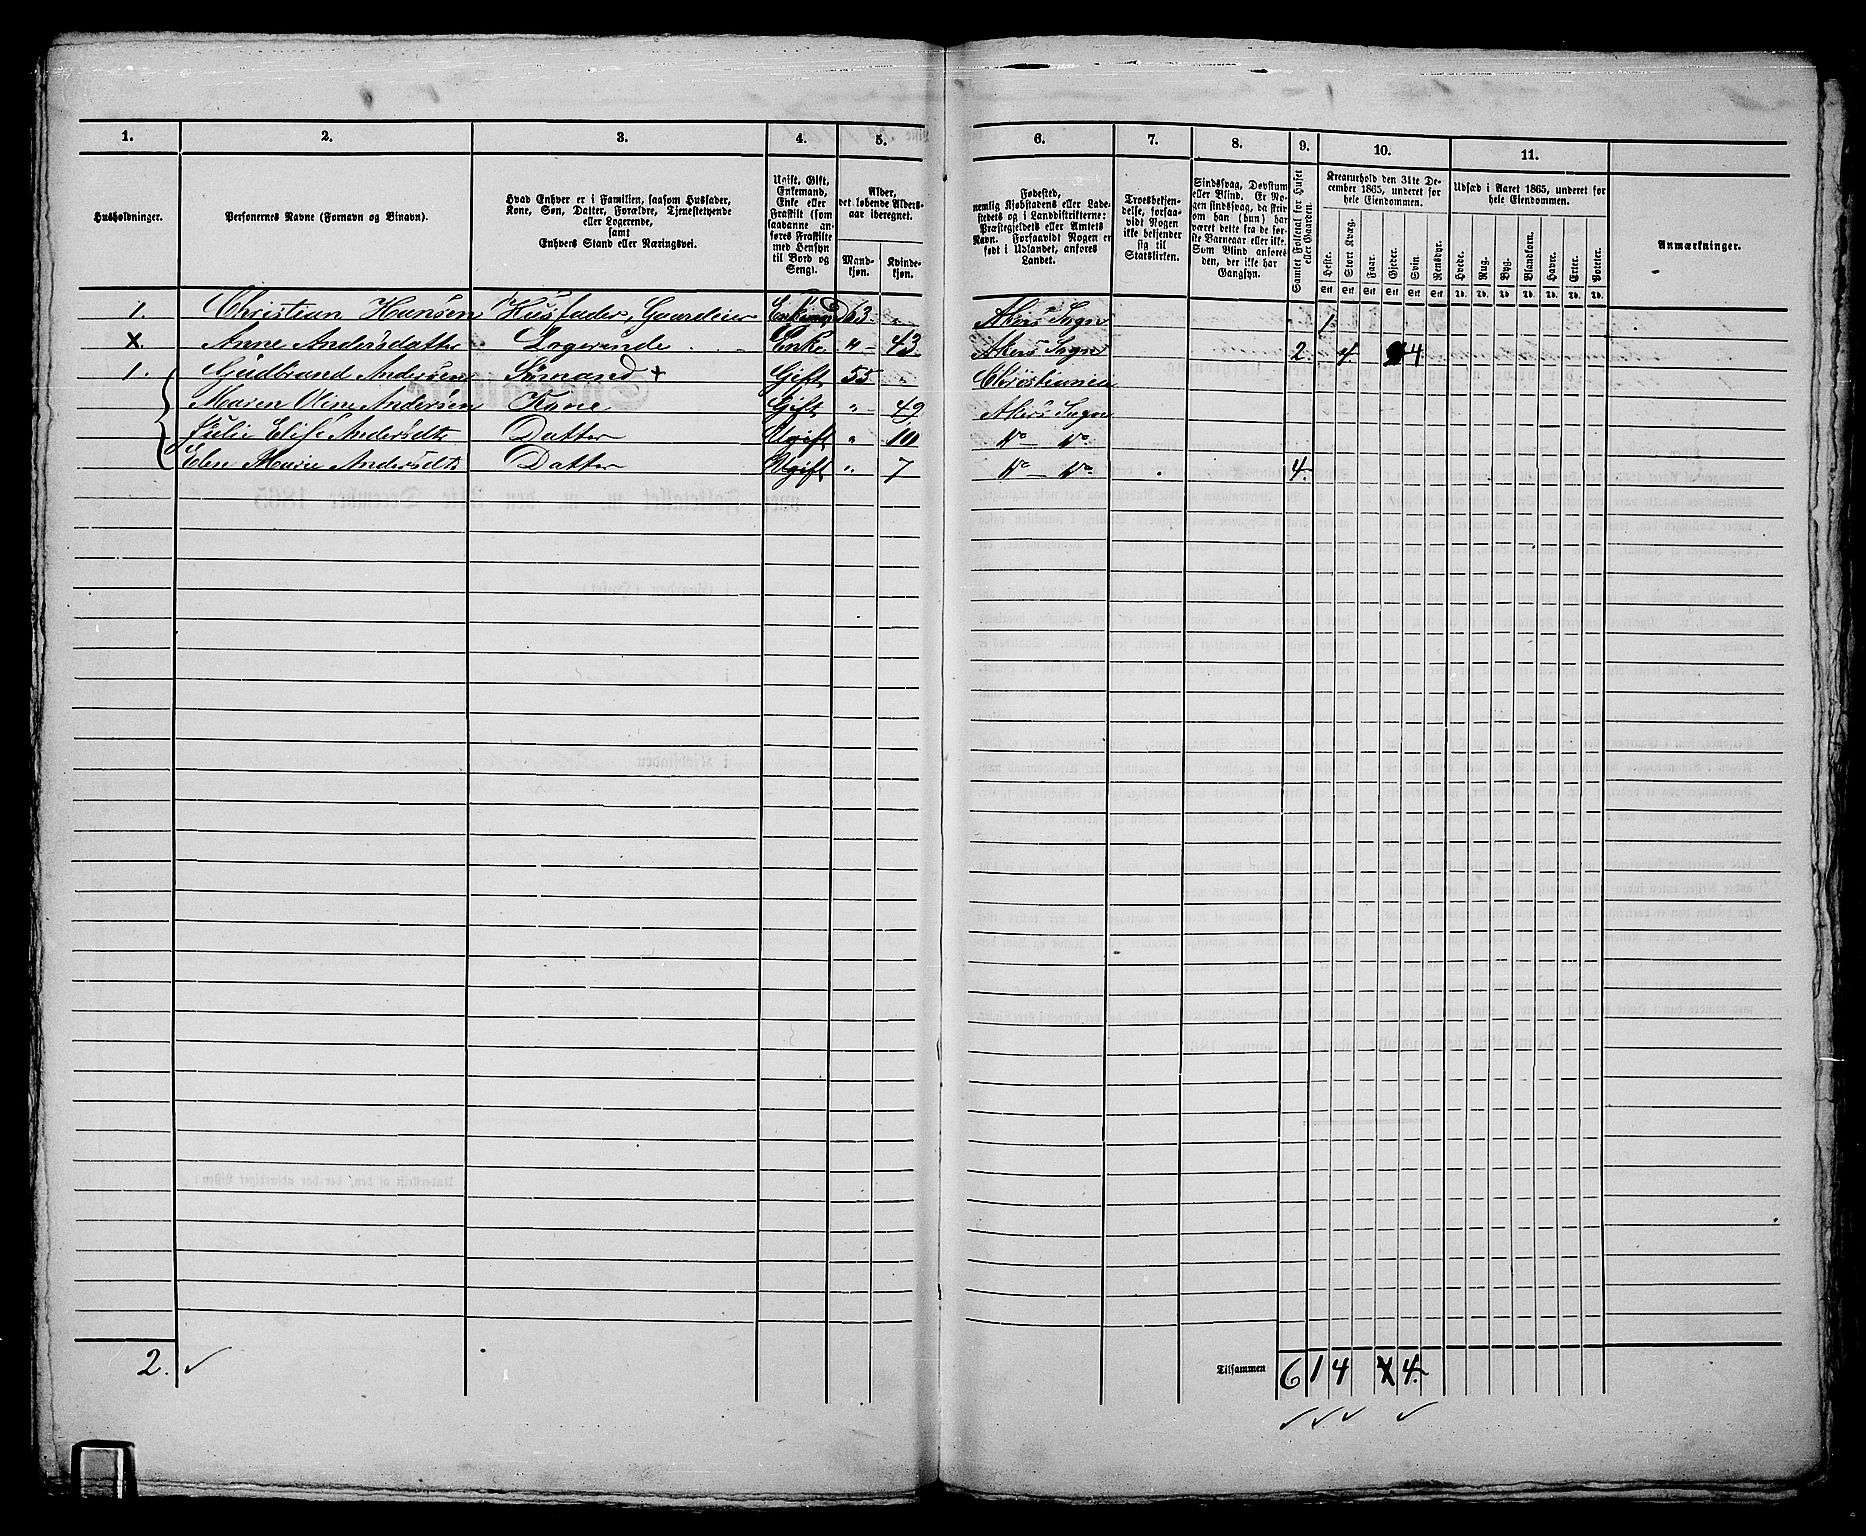 1. 2. 3. 4. 5. 6. 7. 8. 9. 10. 11.
Husholdninger.
Personernes Navne (Fornavn og Binavn).
Hvad Enhver er i Familien, saasom Husfader,
Kone, Søn, Datter, Forældre, Tjenestetyende
eller Logerende,
samt
Enhvers Stand eller Næringsvei.
Ugift, Gift,
Enkemand,
Enke eller
Fraskilt (som
saadanne an-
føres Fraskilte
med Hensyn
til Bord og
Seng).
Alder,
det løbende Alders-
aar iberegnet.
Mand-
kjøn.
Kvinde-
kjøn.
Fødested,
nemlig Kjøbstadens eller Lade-
stedets og i Landdistrikterne:
Præstegjeldets eller Amtets
Navn. Forsaavidt Nogen er
født i Udlandet, anføres
Landet.
Troesbekjen-
delse, forsaa-
vidt Nogen
ikke bekjender
sig til
Statskirken.
Sindssvag, Døvstum
eller Blind. Er No-
gen sindssvag, da skri-
ves om han (hun) har
været dette fra de før-
ste Barneaar eller ikke.
Som Blind anføres
den, der ikke har
Gangsyn.
Samlet Folketal for Huset
eller Gaarden.
Kreaturhold den 31te De-
cember 1865, underet for
hele Eiendommen.
Heste. Stort Kvæg. Faar. Gjeder. Svin. Rensdyr.
Stk Stk Stk Stk Stk Stk
Udsæd i Aaret 1865, underet for
hele Eiendommen.
Hvede. Rug. Byg. Blandkorn. Havre. Erter. Poteter.
Td. Td. Td. Td. Td. Td. Td.
Anmærkninger.
1. Christian Hansen Husfader, Gaardeier Enkemand 63 „ Akers Sogn 1
X. Anne Andersdatter Logerende Enke „ 43 Akers Sogn 2. 4. 4
1. Gudbrand Andersen Sømand + Gift 55 „ Christiania
Maren Oline Andersen Kone Gift „ 49 Akers Sogn
Julie Elise Andersdtr Datter Ugift „ 10 Do Do
Elen Marie Andersdtr Datter Ugift „ 7 Do Do 4.
2. Tilsammen 6 1 4 4.